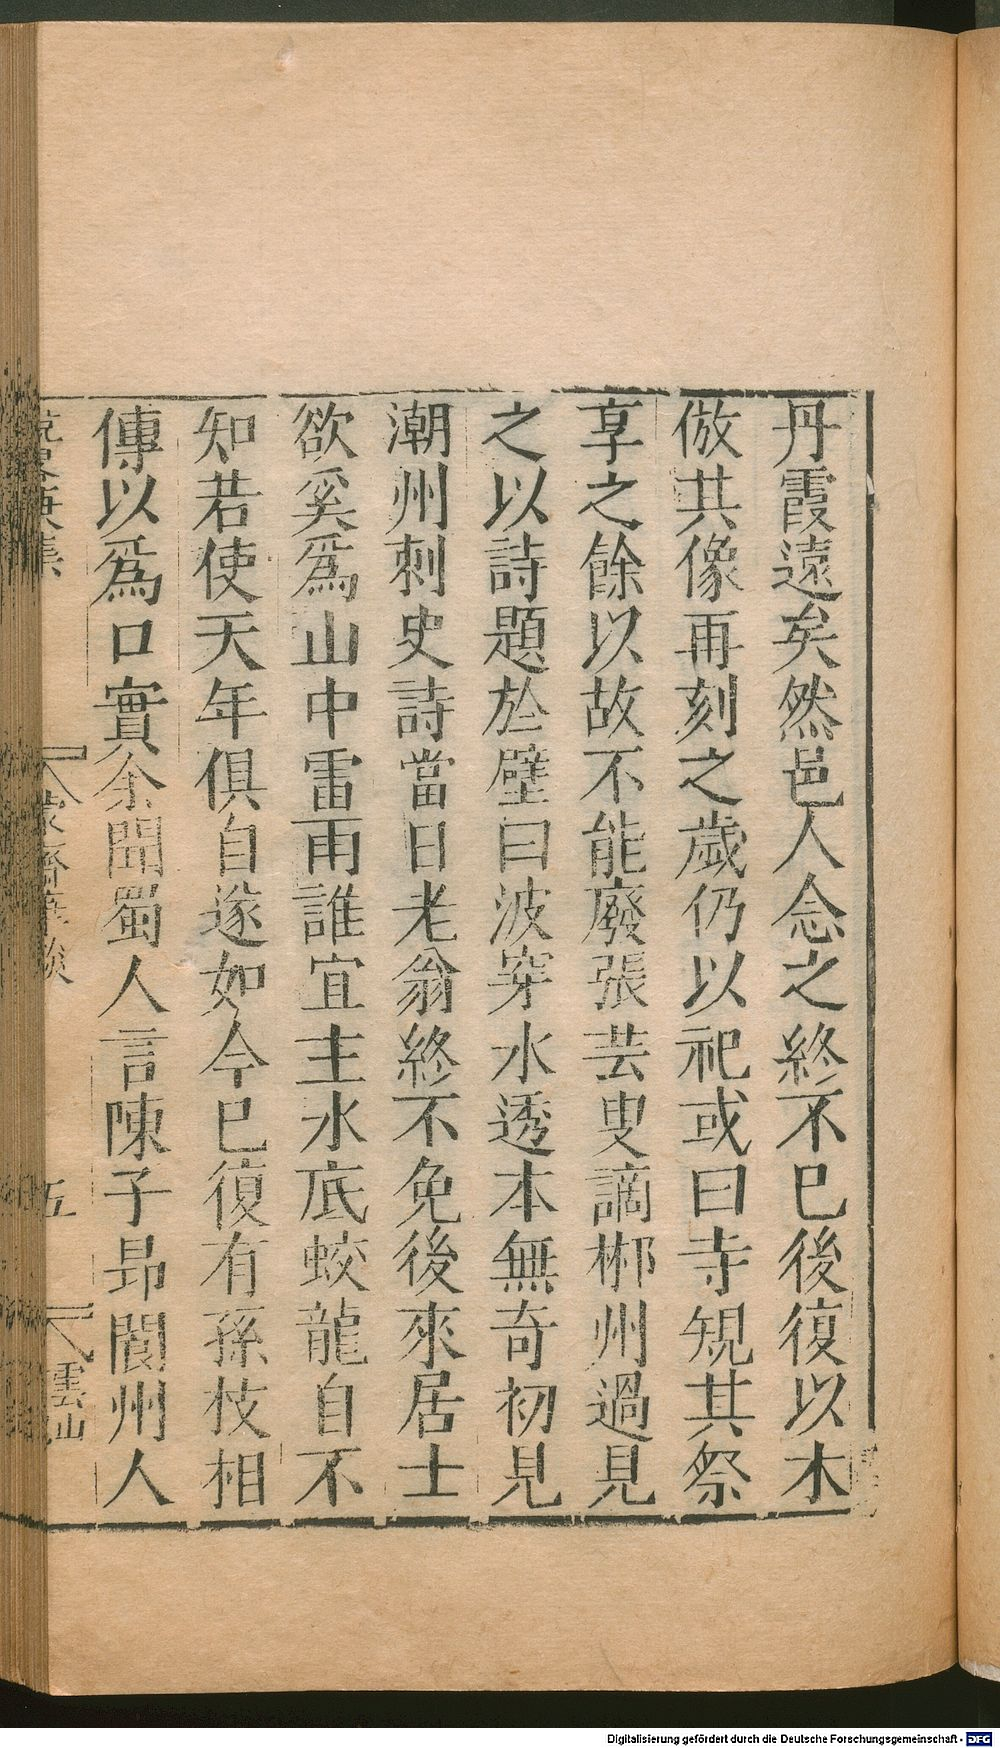 丹霞遠矣然邑人念之終不已後復以木
倣其像再刻之歲仍以祀或曰寺規其祭
享之餘以故不能廢張芸叟謫郴州過見
之以詩題於壁曰波穿水透本無奇初見
潮州刺史詩當日老翁終不免後來居士
欲奚爲山中雷雨誰宜主水底蛟龍自不
知若使天年俱自遂如今已復有孫枝相
傳以爲口實余聞蜀人言陳子昻閬州人
五
雲山
Digitalisierung gefördert durch die Deutsche Forschungsgemeinschaft - DFG